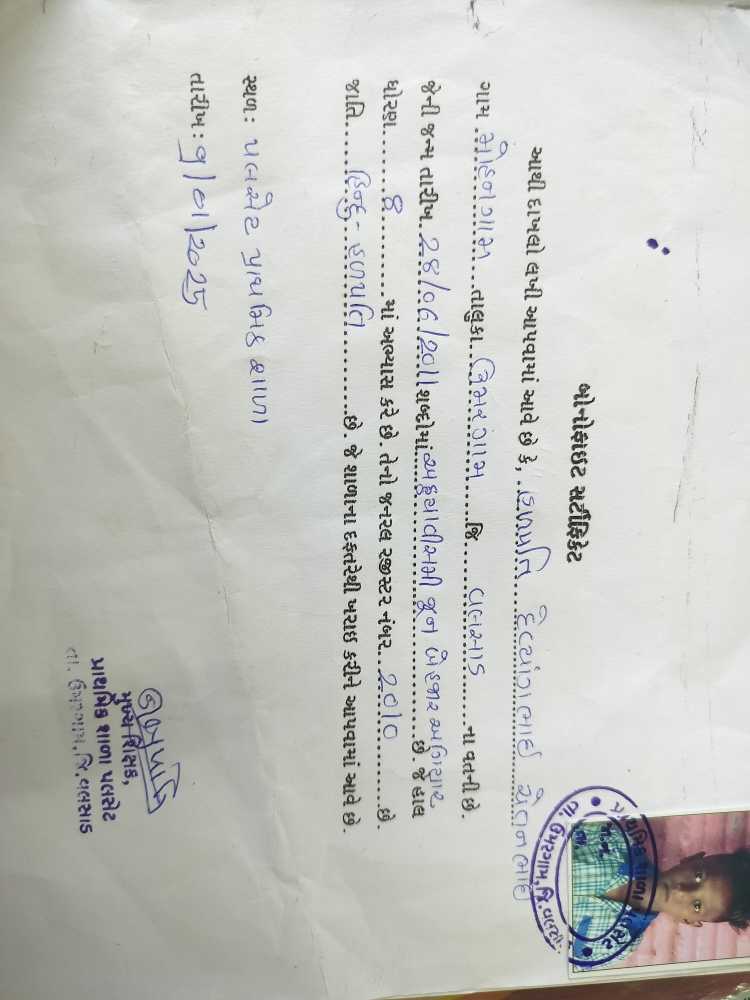 બોનોફાઇટ સર્ટીફિકેટ
આથી દાખલો લખી આપવામાં આવે છે કે, હળપતિ દિવ્યાંગભાઈ
ગામ મોહનગામ તાલુકા ઉમરગામ જિ. વલસાડ ના વતની છે.
જેની જન્મ તારીખ 28/06/2011 શબ્દોમાં અઠ્ઠાવીસમી જૂન બે હજાર અગિયાર છે. જે હાલ
ધોરણ 8 માં અભ્યાસ કરે છે. તેનો જનરલ રજીસ્ટર નંબર 2010 છે.
જાતિ હિન્દુ - હળપતિ છે. જે શાળાના દફતરેથી ખરાઇ કરીને આપવામાં આવે છે.
સ્થળ: પલસેટ પ્રાથમિક શાળા
તારીખ: 9/01/2025
મુખ્ય શિક્ષક,
પ્રાથમિક શાળા પલસેટ
તા. ઉમરગામ, જિ. વલસાડ